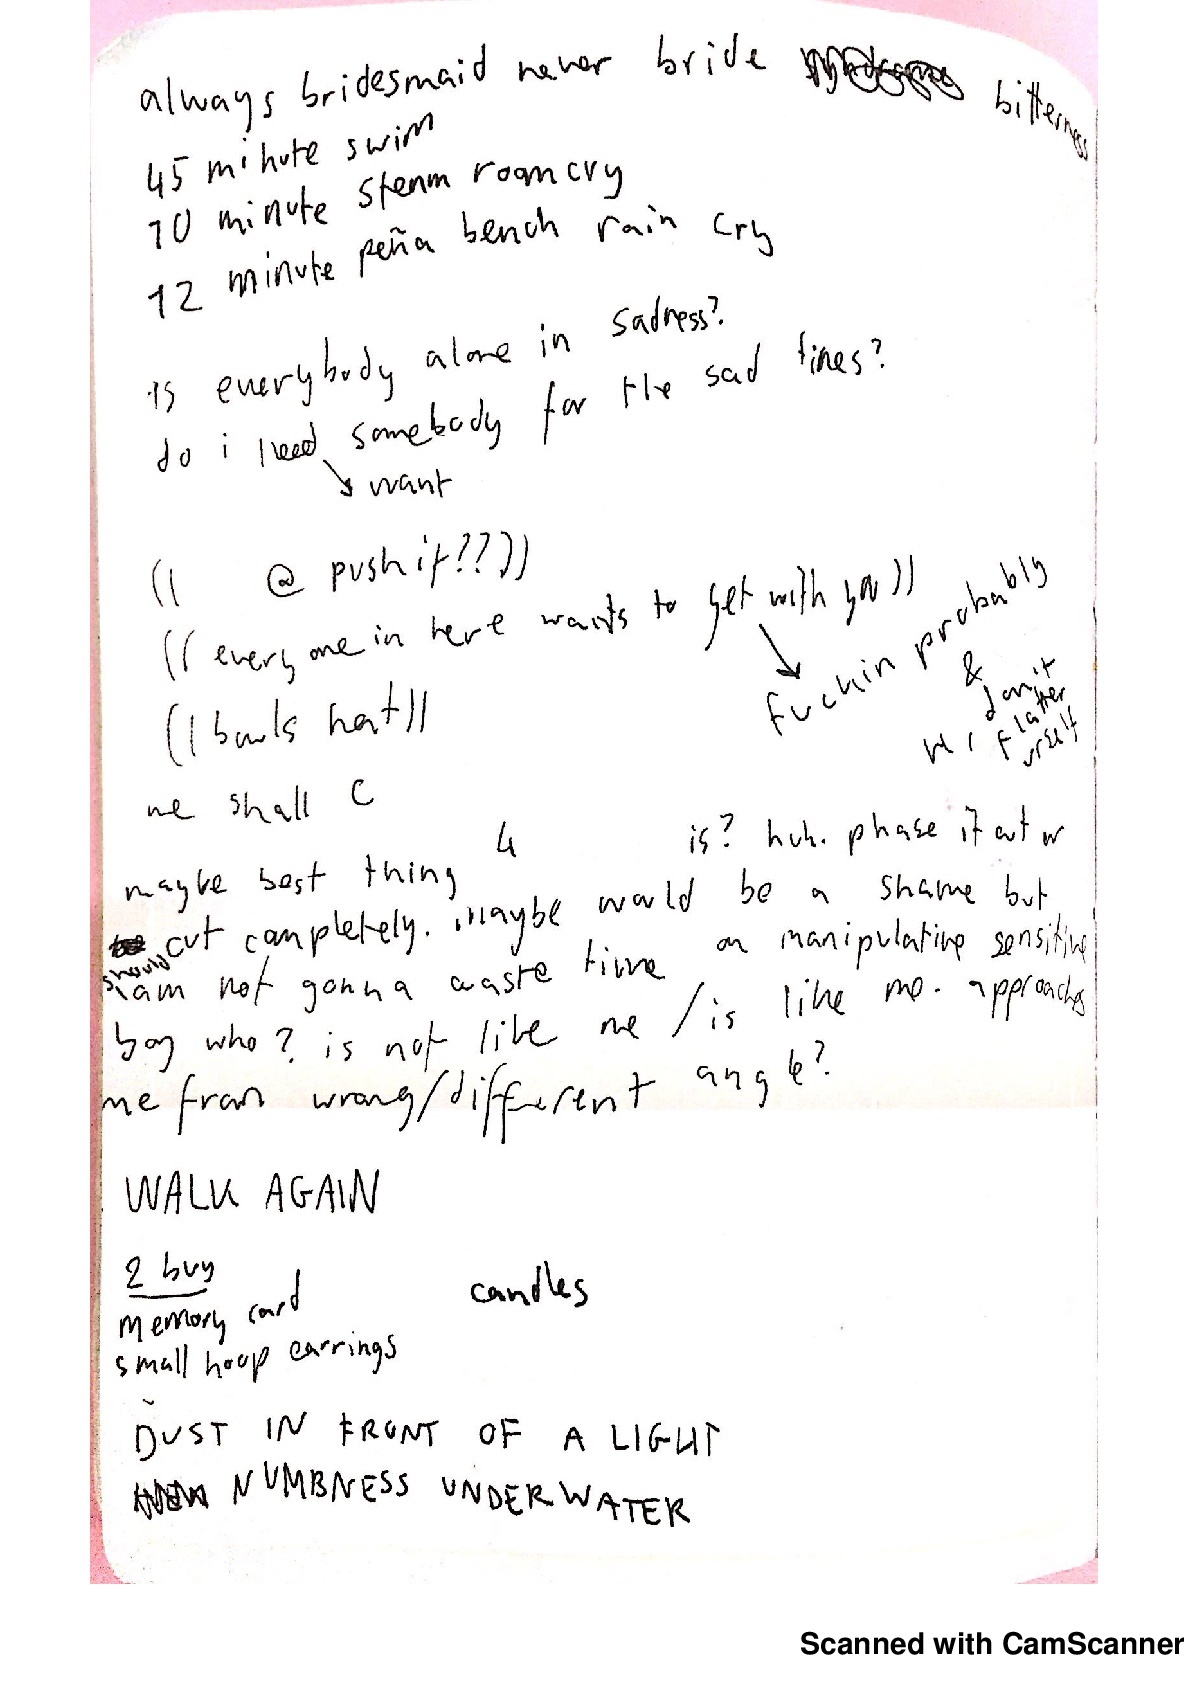 always bridesmaid never bride bitterness
45 minute swim
10 minute steam room cry
12 minute peña bench rain cry
is everybody alone in sadness?
do i need somebody for the sad times?
want
(( @ push it??))
((everyone in here wants to get with you))
fuckin probably
&
don't
flatter
urself
((bowls hat))
we shall C
maybe best thing 4 is? huh. phase it out or
cut completely. maybe would be a shame but
should
i am not gonna waste time on manipulative sensitive
boy who? is not like me / is like me. approaches
me from wrong/different angle?
WALK AGAIN
2 buy
memory card candles
small hoop earrings
DUST IN FRONT OF A LIGHT
NUMBNESS UNDERWATER
Scanned with CamScanner